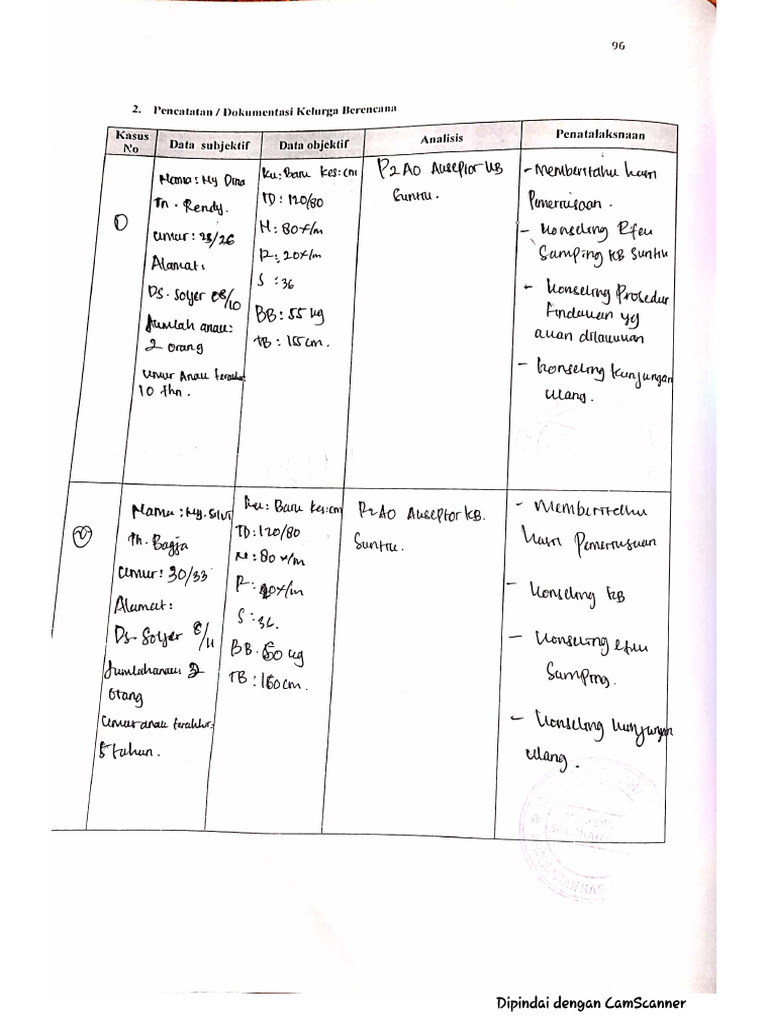 96
2. Pencatatan / Dokumentasi Kelurga Berencana
Kasus No
Data subjektif
Data objektif
Analisis
Penatalaksnaan
1
Nama : Ny Dina
Tn. Rendy.
Umur : 25/26
Alamat :
Ds. Soyer 08/10
Jumlah anak :
2 orang
Umur Anak terakhir
10 thn.
Ku : Baru Kes : cm
TD : 120/80
N : 80x/m
R : 20x/m
S : 36
BB : 55 kg
TB : 155 cm.
P2A0 Akseptor KB
Suntik.
- Memberitahu hasil
Pemeriksaan.
- Konseling Efek
Samping KB Suntik
- Konseling Prosedur
tindakan yg
akan dilakukan
- Konseling kunjungan
ulang.
2
Nama : Ny. Silvi
Tn. Bagja
Umur : 30/33
Alamat :
Ds. Soyer 8/11
Jumlah anak 2
Orang
Umur anak terakhir :
5 tahun.
Ku : Baru Kes : cm
TD : 120/80
N : 80 x/m
R : 20x/m
S : 36.
BB . 60 kg
TB : 160 cm.
P2A0 Akseptor KB.
Suntik.
- Memberitahu
hasil Pemeriksaan
- Konseling KB
- Konseling efek
Samping.
- Konseling kunjungan
ulang.
Dipindai dengan CamScanner